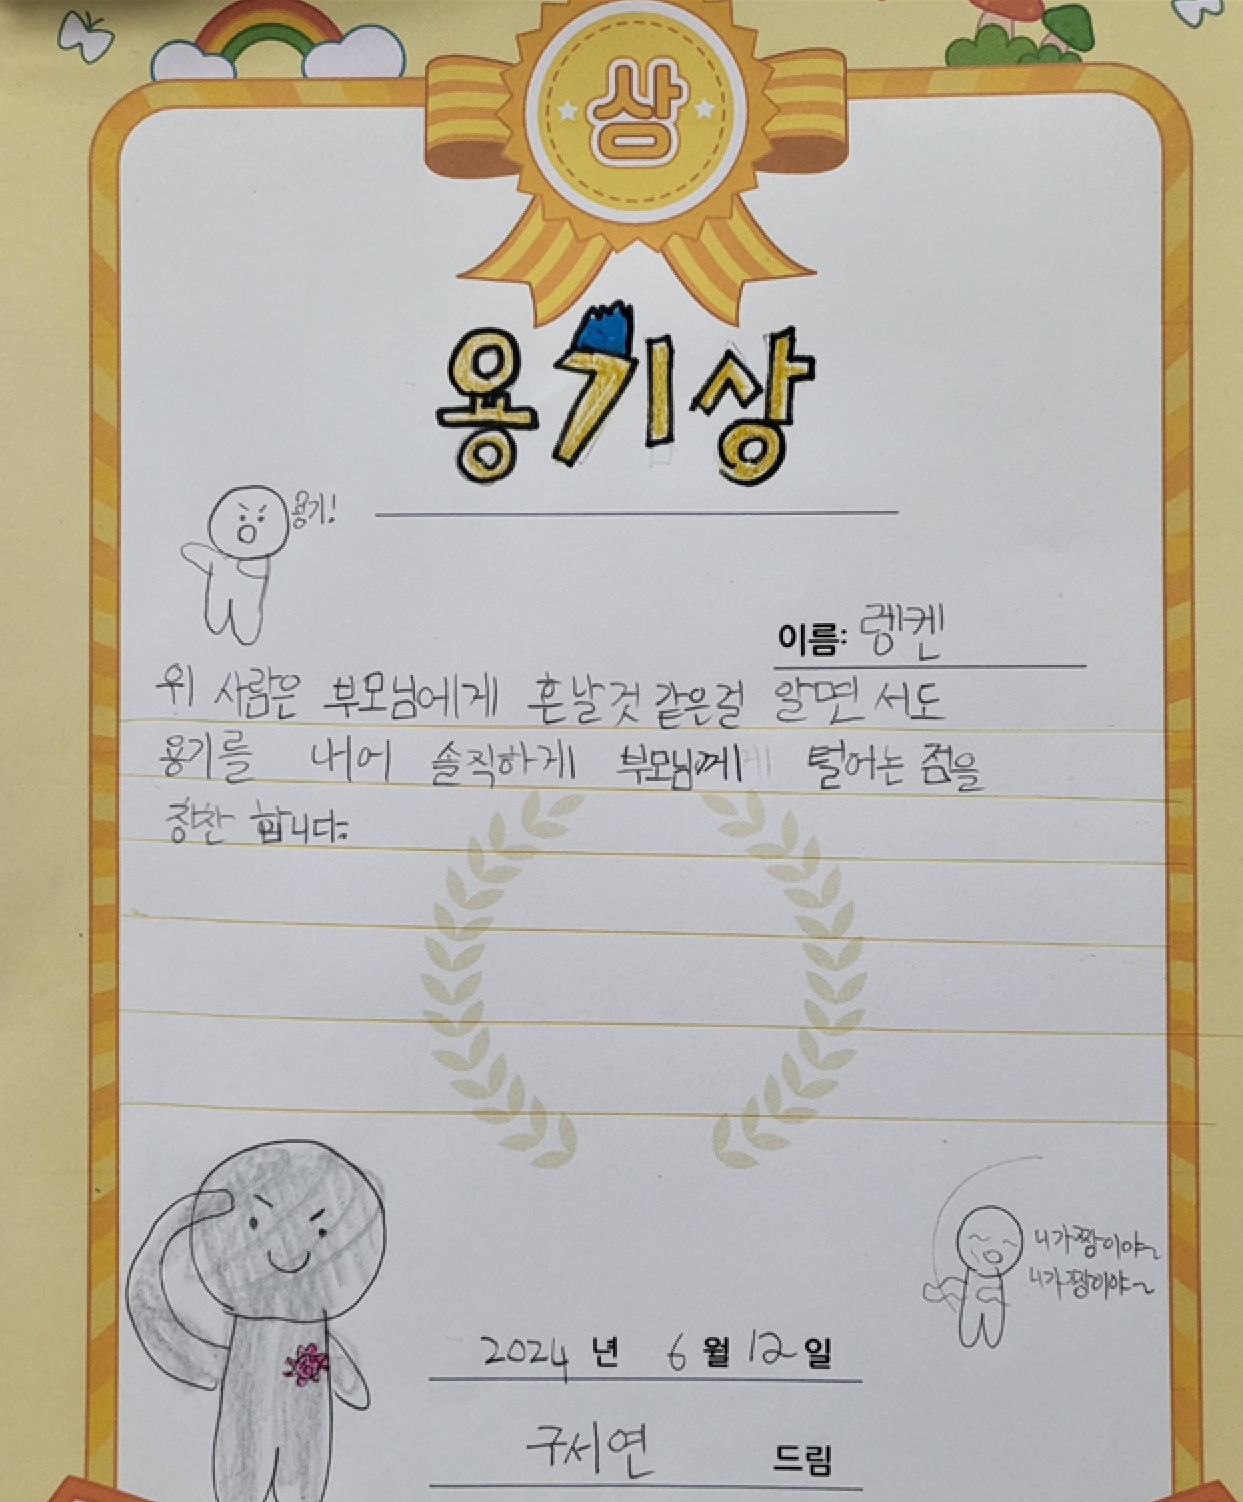 상
용기상
용기!
이름: 렝켄
위 사람은 부모님에게 혼날것 같은걸 알면서도
용기를 내어 솔직하게 부모님께 털어는 점을
칭찬 합니다.
니가짱이야~
니가짱이야~
2024 년 6 월 12 일
구세연 드림